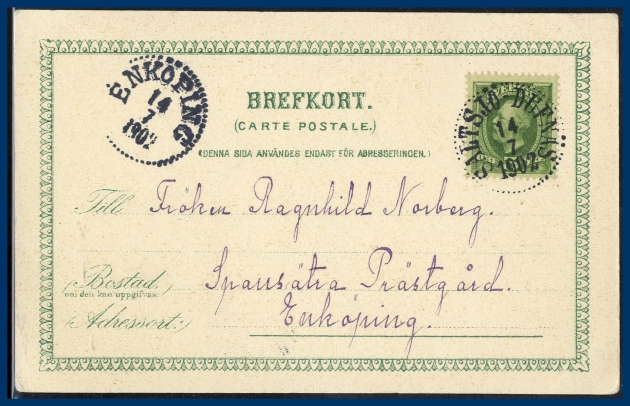 ENKÖPING
14
7
1902
BREFKORT.
(CARTE POSTALE.)
(DENNA SIDA ANVÄNDES ENDAST FÖR ADRESSERINGEN.)
SALTSJÖ DUFNÄS
14
7
1902
Till Fröken Ragnhild Norberg.
(Bostad, Spånsätra Prästgård.
om den kan uppgifvas:)
(Adressort:) Enköping.